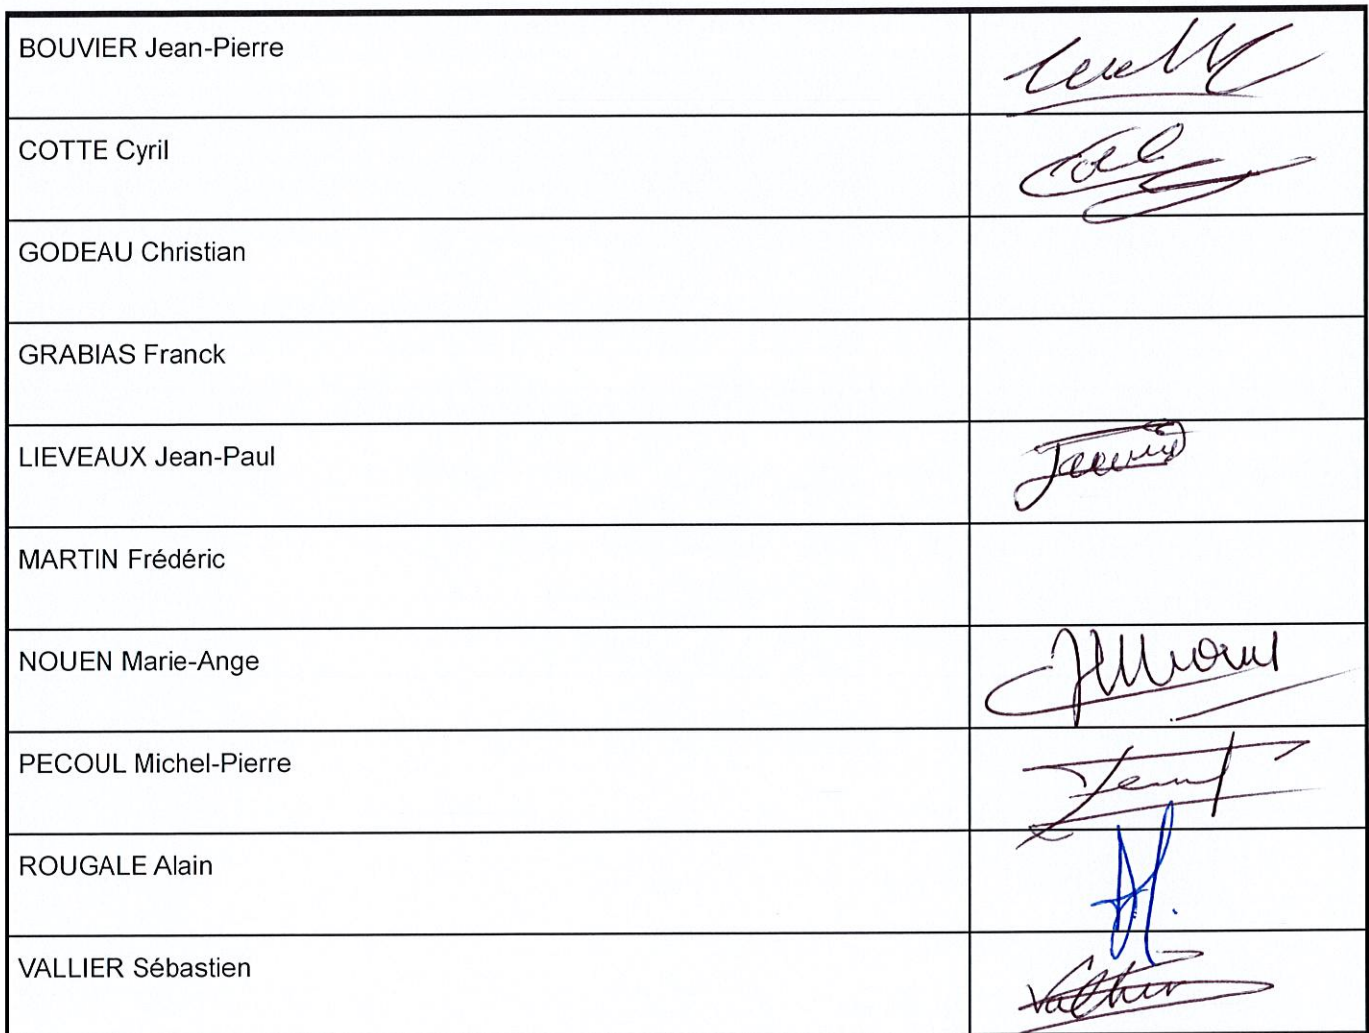 BOUVIER Jean-Pierre
COTTE Cyril
GODEAU Christian
GRABIAS Franck
LIEVEAUX Jean-Paul
MARTIN Frédéric
NOUEN Marie-Ange
PECOUL Michel-Pierre
ROUGALE Alain
VALLIER Sébastien